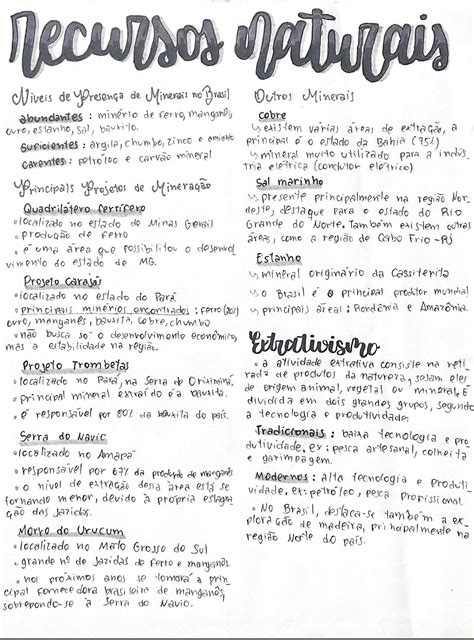 recursos naturais
Níveis de Presença de Minerais no Brasil
abundantes : minério de ferro, manganês,
ouro, estanho, sal, bauxita.
suficientes : argila, chumbo, zinco e amianto
carentes : petróleo e carvão mineral
Principais Projetos de Mineração
Quadrilátero Ferrífero
• localizado no estado de Minas Gerais
• produção de ferro
• é uma área que possibilitou o desenvol
vimento do estado de MG.
Projeto Carajás
• localizado no estado do Pará
• principais minérios encontrados : ferro
ouro, manganês, bauxita, cobre, chumbo
• não busca só o desenvolvimento econômico,
mas a estabilidade na região.
Projeto Trombetas
• localizado no Pará, na Serra do Oriximiná.
• principal mineral extraído é a bauxita.
• é responsável por 80% da bauxita do país.
Serra do Navio
• localizado no Amapá
• responsável por 67% da produção de manganês
• o nível de extração dessa área está se
tornando menor, devido à própria estagna
ção das jazidas.
Morro do Urucum
• localizado no Mato Grosso do Sul
• grande nº de jazidas de ferro e manganês.
• nos próximos anos se tornará a prin
cipal fornecedora brasileira de manganês,
sobrepondo-se à Serra do Navio.
Outros Minerais
cobre
↳ existem várias áreas de extração, a
principal é o estado da Bahia (75%)
↳ mineral muito utilizado para a indús
tria elétrica (condutor elétrico)
Sal marinho
↳ presente principalmente na região Nor
deste, destaque para o estado do Rio
Grande do Norte. Também existem outras
áreas, como a região de Cabo Frio - RJ
Estanho
↳ mineral originário da Cassiterita
↳ o Brasil é o principal produtor mundial
↳ principais áreas : Rondônia e Amazônia.
Extrativismo
• a atividade extrativa consiste na reti
rada de produtos da natureza, sejam eles
de origem animal, vegetal ou mineral. É
dividida em dois grandes grupos, segundo
a tecnologia e produtividade.
Tradicionais : baixa tecnologia e pro
dutividade. ex : pesca artesanal, colheita
e garimpagem.
Modernos : alta tecnologia e produti
vidade. ex: petróleo, pesca profissional.
• No Brasil, destaca-se também a ex
ploração de madeira, principalmente na
região Norte do país.